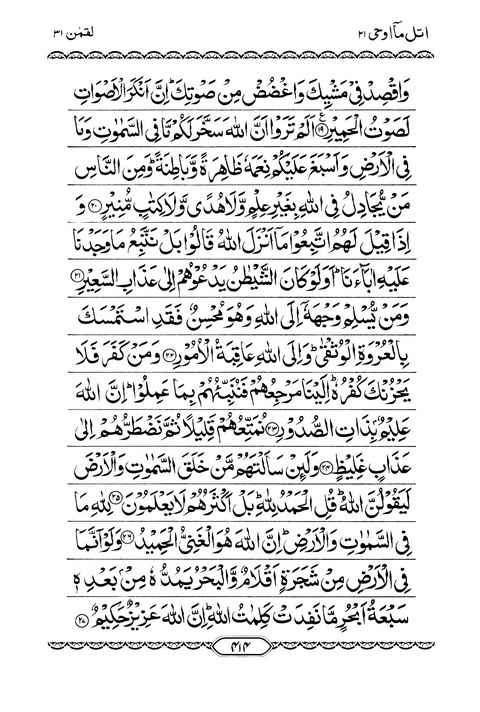 اتل مآ اوحی ۲۱
لقمٰن ۳۱
وَاقْصِدْ فِیْ مَشْیِکَ وَاغْضُضْ مِنْ صَوْتِکَ ؕ اِنَّ اَنْکَرَ الْاَصْوَاتِ
لَصَوْتُ الْحَمِیْرِ ﴿۱۹﴾ ع اَلَمْ تَرَوْا اَنَّ اللّٰهَ سَخَّرَ لَکُمْ مَّا فِی السَّمٰوٰتِ وَمَا
فِی الْاَرْضِ وَاَسْبَغَ عَلَیْکُمْ نِعَمَهٗ ظَاهِرَةً وَّبَاطِنَةً ؕ وَمِنَ النَّاسِ
مَنْ یُّجَادِلُ فِی اللّٰهِ بِغَیْرِ عِلْمٍ وَّلَا هُدًی وَّلَا کِتٰبٍ مُّنِیْرٍ ﴿۲۰﴾ وَ
اِذَا قِیْلَ لَهُمُ اتَّبِعُوْا مَآ اَنْزَلَ اللّٰهُ قَالُوْا بَلْ نَتَّبِعُ مَا وَجَدْنَا
عَلَیْهِ اٰبَآءَنَا ؕ اَوَلَوْ کَانَ الشَّیْطٰنُ یَدْعُوْهُمْ اِلٰی عَذَابِ السَّعِیْرِ ﴿۲۱﴾
وَمَنْ یُّسْلِمْ وَجْهَهٗٓ اِلَی اللّٰهِ وَهُوَ مُحْسِنٌ فَقَدِ اسْتَمْسَکَ
بِالْعُرْوَةِ الْوُثْقٰی ؕ وَاِلَی اللّٰهِ عَاقِبَةُ الْاُمُوْرِ ﴿۲۲﴾ وَمَنْ کَفَرَ فَلَا
یَحْزُنْکَ کُفْرُهٗ ؕ اِلَیْنَا مَرْجِعُهُمْ فَنُنَبِّئُهُمْ بِمَا عَمِلُوْا ؕ اِنَّ اللّٰهَ
عَلِیْمٌۢ بِذَاتِ الصُّدُوْرِ ﴿۲۳﴾ نُمَتِّعُهُمْ قَلِیْلًا ثُمَّ نَضْطَرُّهُمْ اِلٰی
عَذَابٍ غَلِیْظٍ ﴿۲۴﴾ وَلَئِنْ سَاَلْتَهُمْ مَّنْ خَلَقَ السَّمٰوٰتِ وَالْاَرْضَ
لَیَقُوْلُنَّ اللّٰهُ ؕ قُلِ الْحَمْدُ لِلّٰهِ ؕ بَلْ اَکْثَرُهُمْ لَا یَعْلَمُوْنَ ﴿۲۵﴾ لِلّٰهِ مَا
فِی السَّمٰوٰتِ وَالْاَرْضِ ؕ اِنَّ اللّٰهَ هُوَ الْغَنِیُّ الْحَمِیْدُ ﴿۲۶﴾ وَلَوْ اَنَّمَا
فِی الْاَرْضِ مِنْ شَجَرَةٍ اَقْلَامٌ وَّالْبَحْرُ یَمُدُّهٗ مِنْۢ بَعْدِهٖ
سَبْعَةُ اَبْحُرٍ مَّا نَفِدَتْ کَلِمٰتُ اللّٰهِ ؕ اِنَّ اللّٰهَ عَزِیْزٌ حَکِیْمٌ ﴿۲۷﴾
۴۱۴